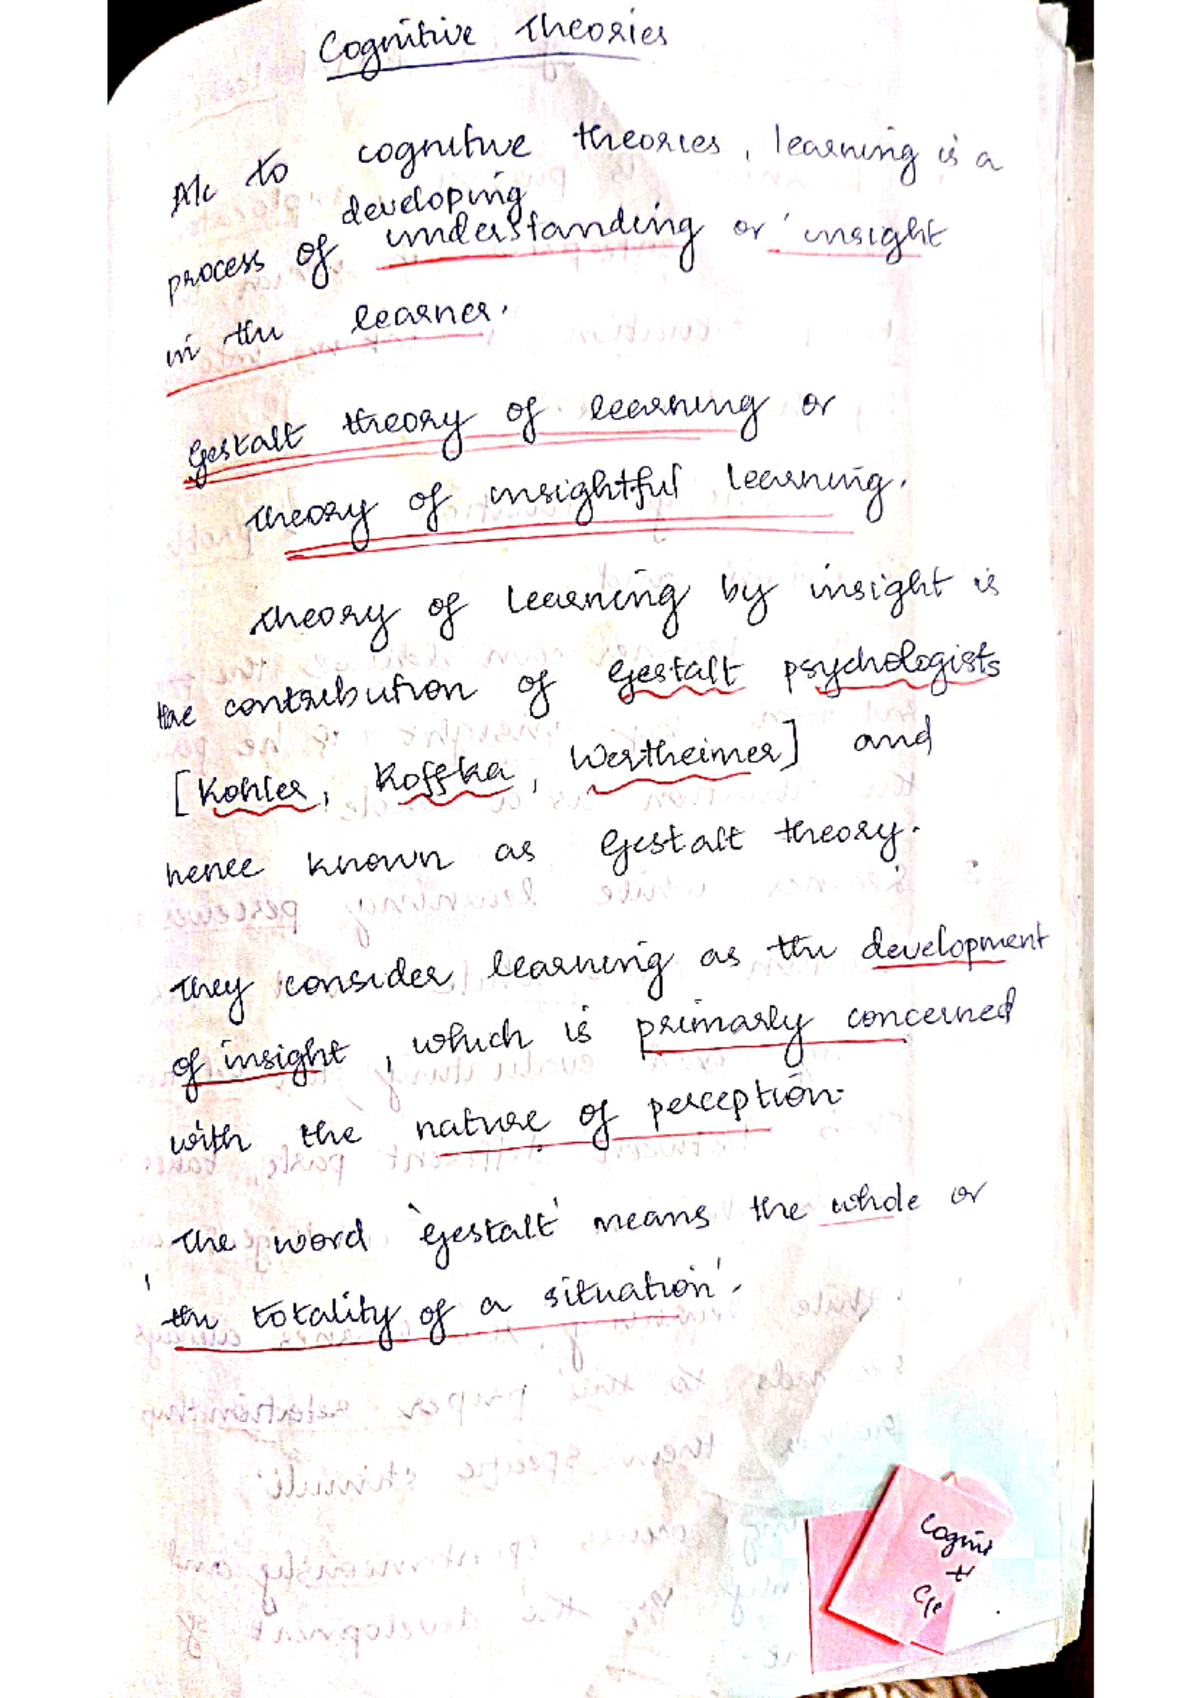 Cognitive Theories
A/c to cognitive theories, learning is a
process of developing understanding or 'insight
in the learner.
Gestalt theory of learning or
theory of insightful learning.
theory of learning by insight is
the contribution of Gestalt psychologists
[Kohler, Koffka, Wertheimer] and
hence known as Gestalt theory.
They consider learning as the development
of insight, which is primarly concerned
with the nature of perception.
The word 'Gestalt' means the whole or
'the totality of a situation'.